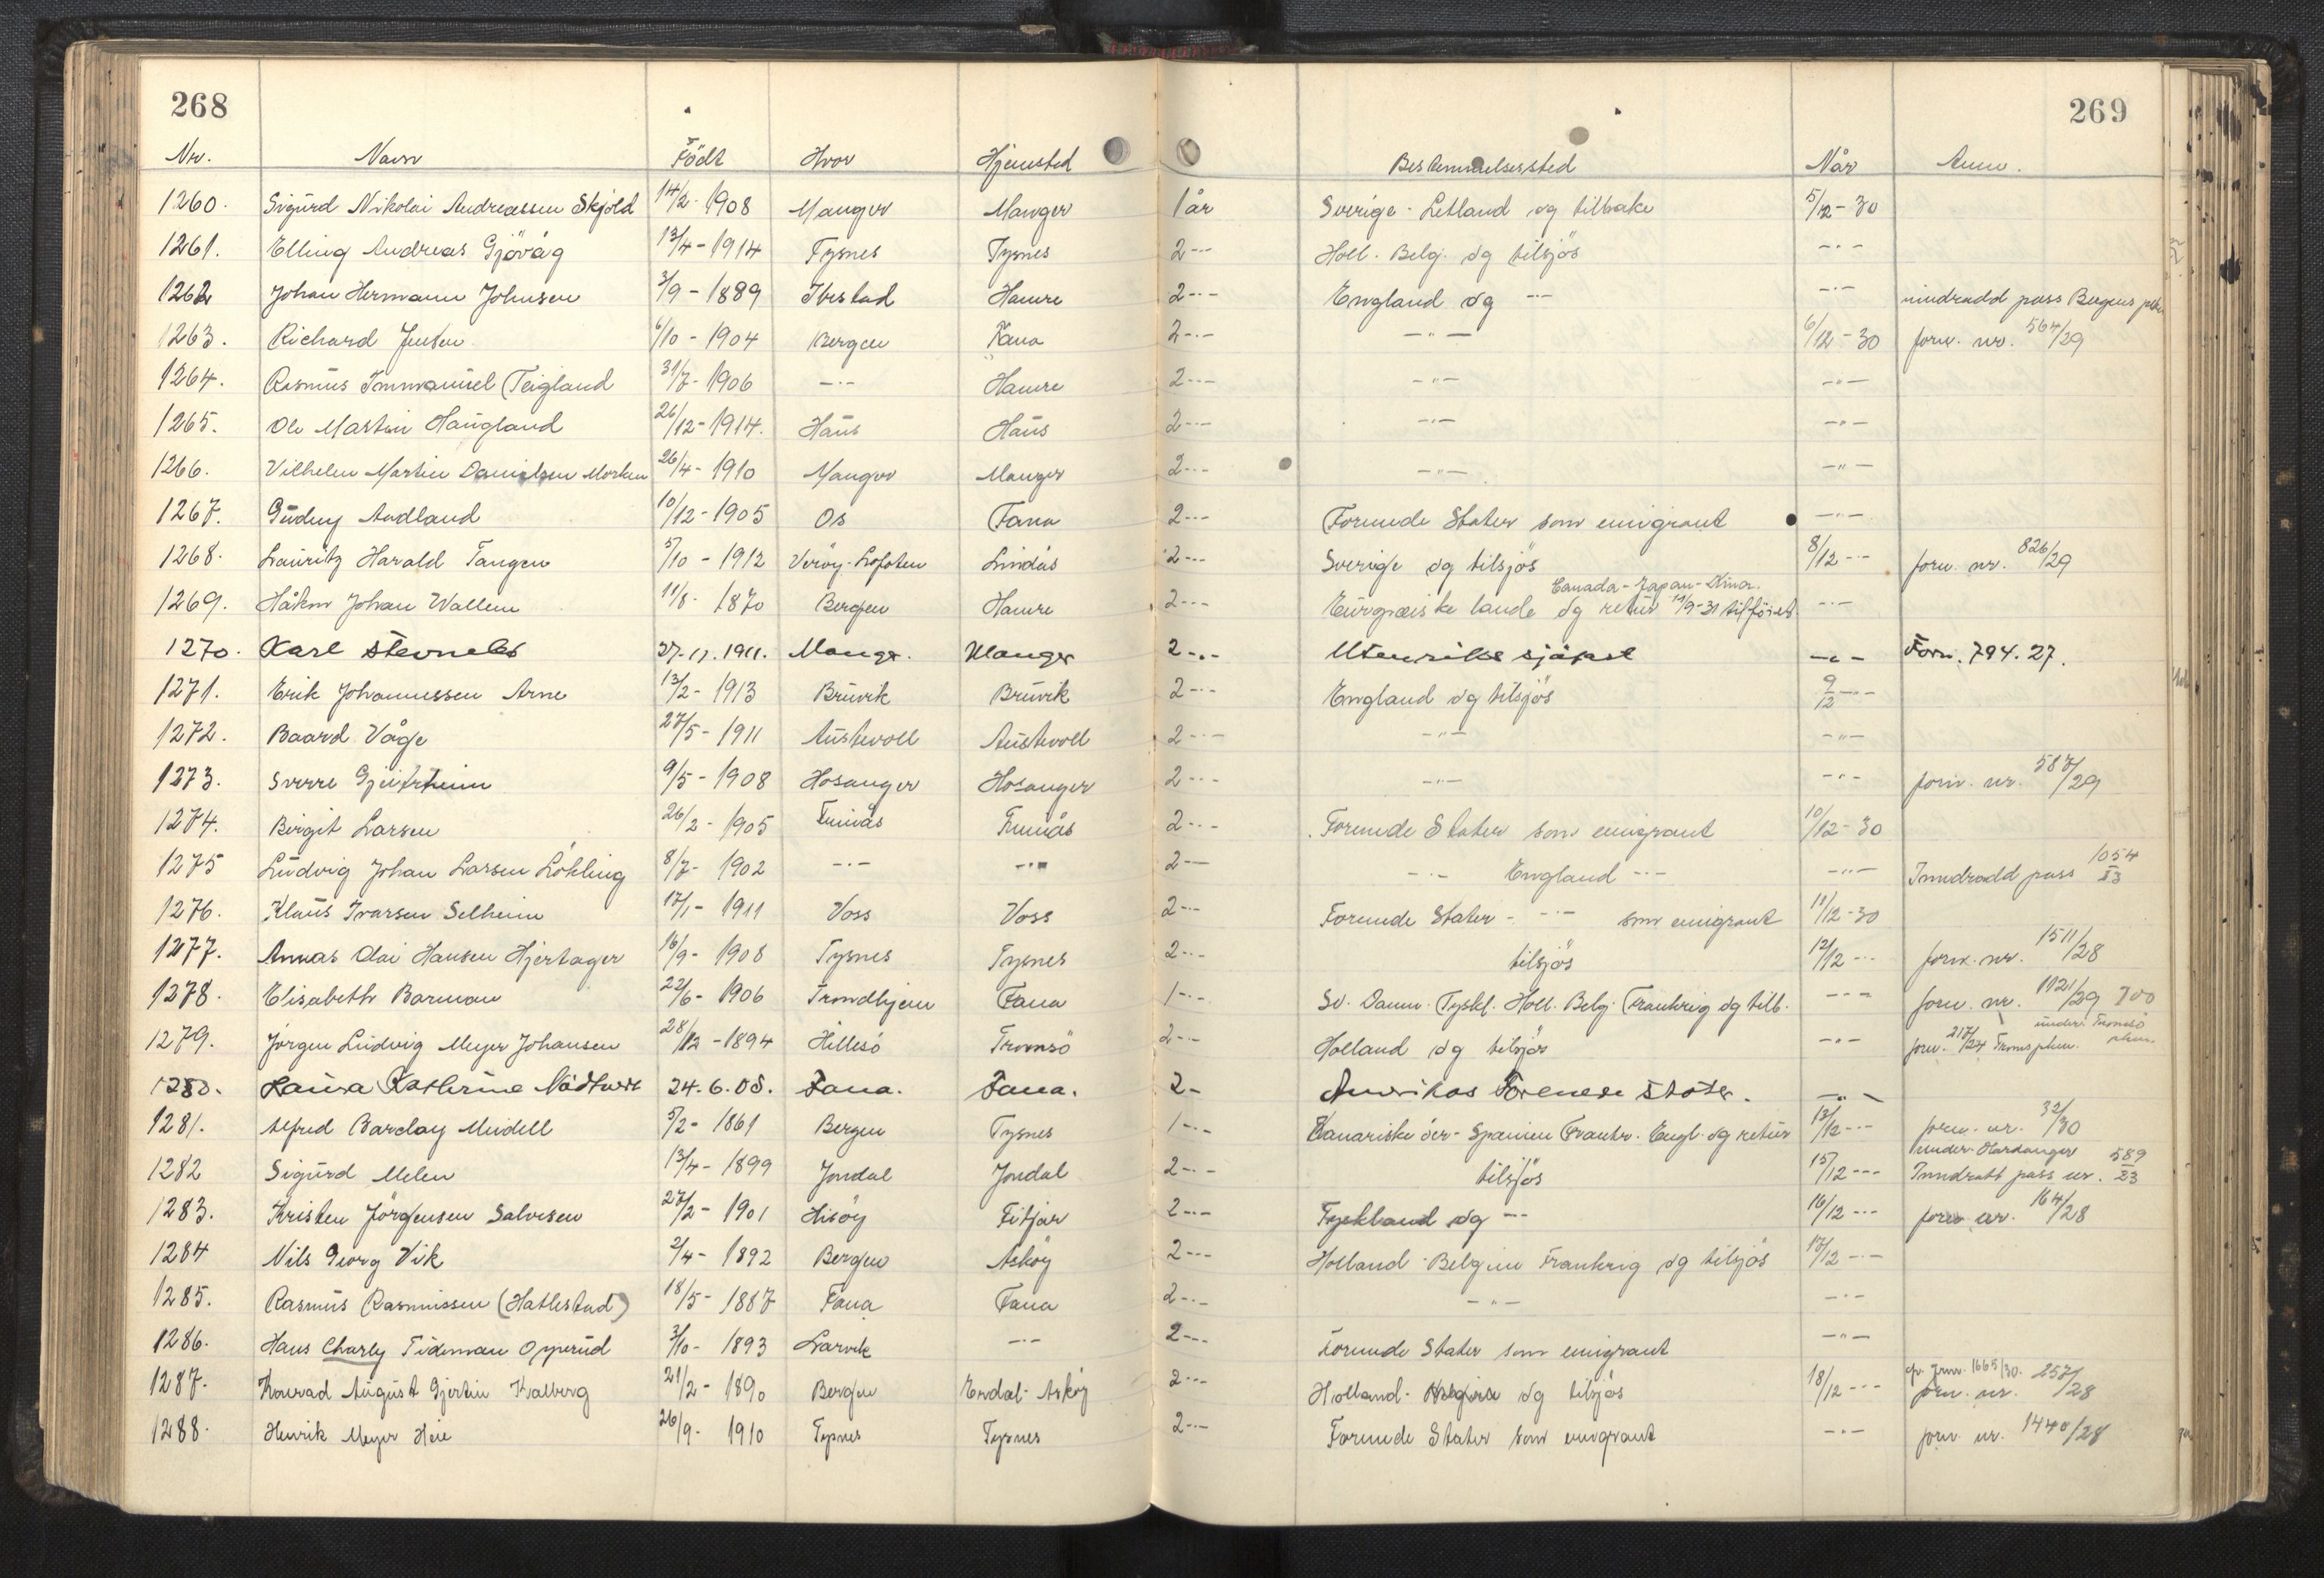 268
269
Nr. Navn Födt Hvor Hjemsted Bestemmelsessted Når Anm.
1260. Sigurd Nikolai Andreassen Skjold 14/2- 1908 Manger Manger 1 år Sverige - Letland og tilbake 5/12-30
1261. Elling Andreas Gjövåg 13/4-1914 Tysnes Tysnes 2-·- Holl. Belg. og tilsjös -·-
1262 Johan Hermann Johnsen 3/9-1889 Ibestad Hamre 2-·- England og -·- -·- inndradd pass Bergens
1263. Richard Jensen 6/10-1904 Bergen Fana 2-·- -"- 6/12-30 forn. nr. 564/29
1264. Rasmus Immanuel Teigland 31/7-1906 -·- Hamre 2-·- -"- -"-
1265. Ole Martin Haugland 26/12-1914. Haus Haus 2-·- -·- -·-
1266. Vilhelm Martin Danielsen Morken 26/4-1910 Manger Manger 2-·- -"- -"-
1267. Gudny Aadland 10/12-1905 Os Fana 2-·- Forende Stater som emigrant -·-
1268. Lauritz Harald Tangen 5/10-1912 Veröy-Lofoten Lindås 2-·- Sverige og tilsjös 8/12-·- forn. nr. 826/29
Canada-Japan-Kina.
1269. Håkon Johan Wallem 11/8- 1870 Bergen Hamre 2-·- Europæiske lande og retur 14/9-31 tilföiet -·-
1270. Karl Stevnebö 27-11.1911. Manger. Manger 2-·- Utenriks sjöfart -·- Forn. 794. 27.
1271. Erik Johannessen Arne 13/2-1913 Bruvik Bruvik 2-·- England og tilsjös 9/12-·-
1272. Baard Våge 27/5-1911 Austevoll Austevoll 2-·- -"- -"-
1273. Sverre Gjeitrheim 9/5-1908 Hosanger Hosanger 2-·- -"- -"- forn. nr. 587/29
1274. Birgit Larsen 26/2-1905 2-·- Forende Stater som emigrant 10/12-30
1275 Ludvig Johan Larsen Löhling 8/7-1902 -·- -·- 2-- -·- England -·- -"- Inndradd pass 1054/23
1276. Klaus Ivarsen Selheim 17/1-1911 Voss Voss 2-·- Forende Stater - -·- som emigrant 11/12-30
1277. Annas Olai Hansen Hjertager 16/9-1908 Tysnes Tysnes 2-·- tilsjös 12/12-·- forn. nr. 1511/28
1278. Elisabeth Barman 22/6-1906 Trondhjem Fana 1-·- Sv. Danm. Tyskl. Holl. Belg. Frankrig og tilb. -·- forn. nr. 1121/29 700
under Tromsö
1279. Jörgen Ludvig Meyer Johansen 28/12-1894 Hillesö Tromsö 2-·- Holland og tilsjös -·- forn. 217/24 Troms
1280. Laura Katherine Nådtvedt 24.6.08. Fana. Fana. 2- Amerikas Forenede Stater. -·-
1281. Alfred Barclay Meidell 5/2-1861 Bergen Tysnes 1-·- Kanariske öer-Spanien Frankr. Engl. og retur 13/12-·- forn. nr. 32/30
under Hardanger
1282 Sigurd Melen 13/4-1899 Jondal Jondal 2-·- tilsjös 15/12-·- Inndratt pass nr. 589/23
1283. Kristen Jörgensen Salvesen 27/2-1901 Hisöy Fitjar 2-·- Tyskland og -·- 16/12-·- forn nr. 164/28
1284 Nils Georg Vik 2/4-1892 Bergen Asköy 2-·- Holland-Belgien Frankrig og tilsjös 17/12-·-
1285. Rasmus Rasmussen (Hatlestad) 18/5-1887 Fana Fana 2-·- -"- -·-
1286. Hans Charly Tideman Opperud 3/10-1893 Larvik -·- 2-·- Forende Stater som emigrant -"-
gr. Jnr. 1665/30.
1287. Konrad August Gjertin Kalberg 21/2-1890 Bergen Erdal-Asköy 2-·- Holland-Belgien og tilsjös 18/12-·- forn. nr. 257/28
1288. Henrik Meyer Heie 26/9-1910 Tysnes Tysnes 2-·- Forende Stater som emigrant -·- forn. nr. 1440/28